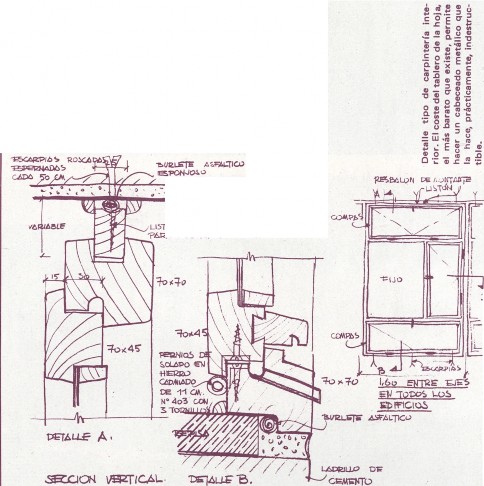 Detalle tipo de carpintería inte-
rior. El coste del tablero de la hoja,
el más barato que existe, permite
hacer un cabeceado metálico que
la hace, prácticamente, indestruc-
tible.
ESCARPIAS ROSCADAS
ESPERNADAS
CADA 50 CM
BURLETE ASFALTICO
ESPONJOSO
VARIABLE
LIST
PAR
15
50
70x70
70x45
DETALLE A.
SECCION VERTICAL.
70x45
PERNIOS DE
SOLADO EN
HIERRO
CADMIADO
DE 11 CM.
Nº 403 CON
3 TORNILLOS
70x70
BURLETE ASFALTICO
LADRILLO DE
CEMENTO
DETALLE B.
RESBALON DE MONTANTE
LISTÓN
A
COMPAS
FIJO
COMPAS
B
ESCARPIAS
1.60 ENTRE EJES
EN TODOS LOS
EDIFICIOS